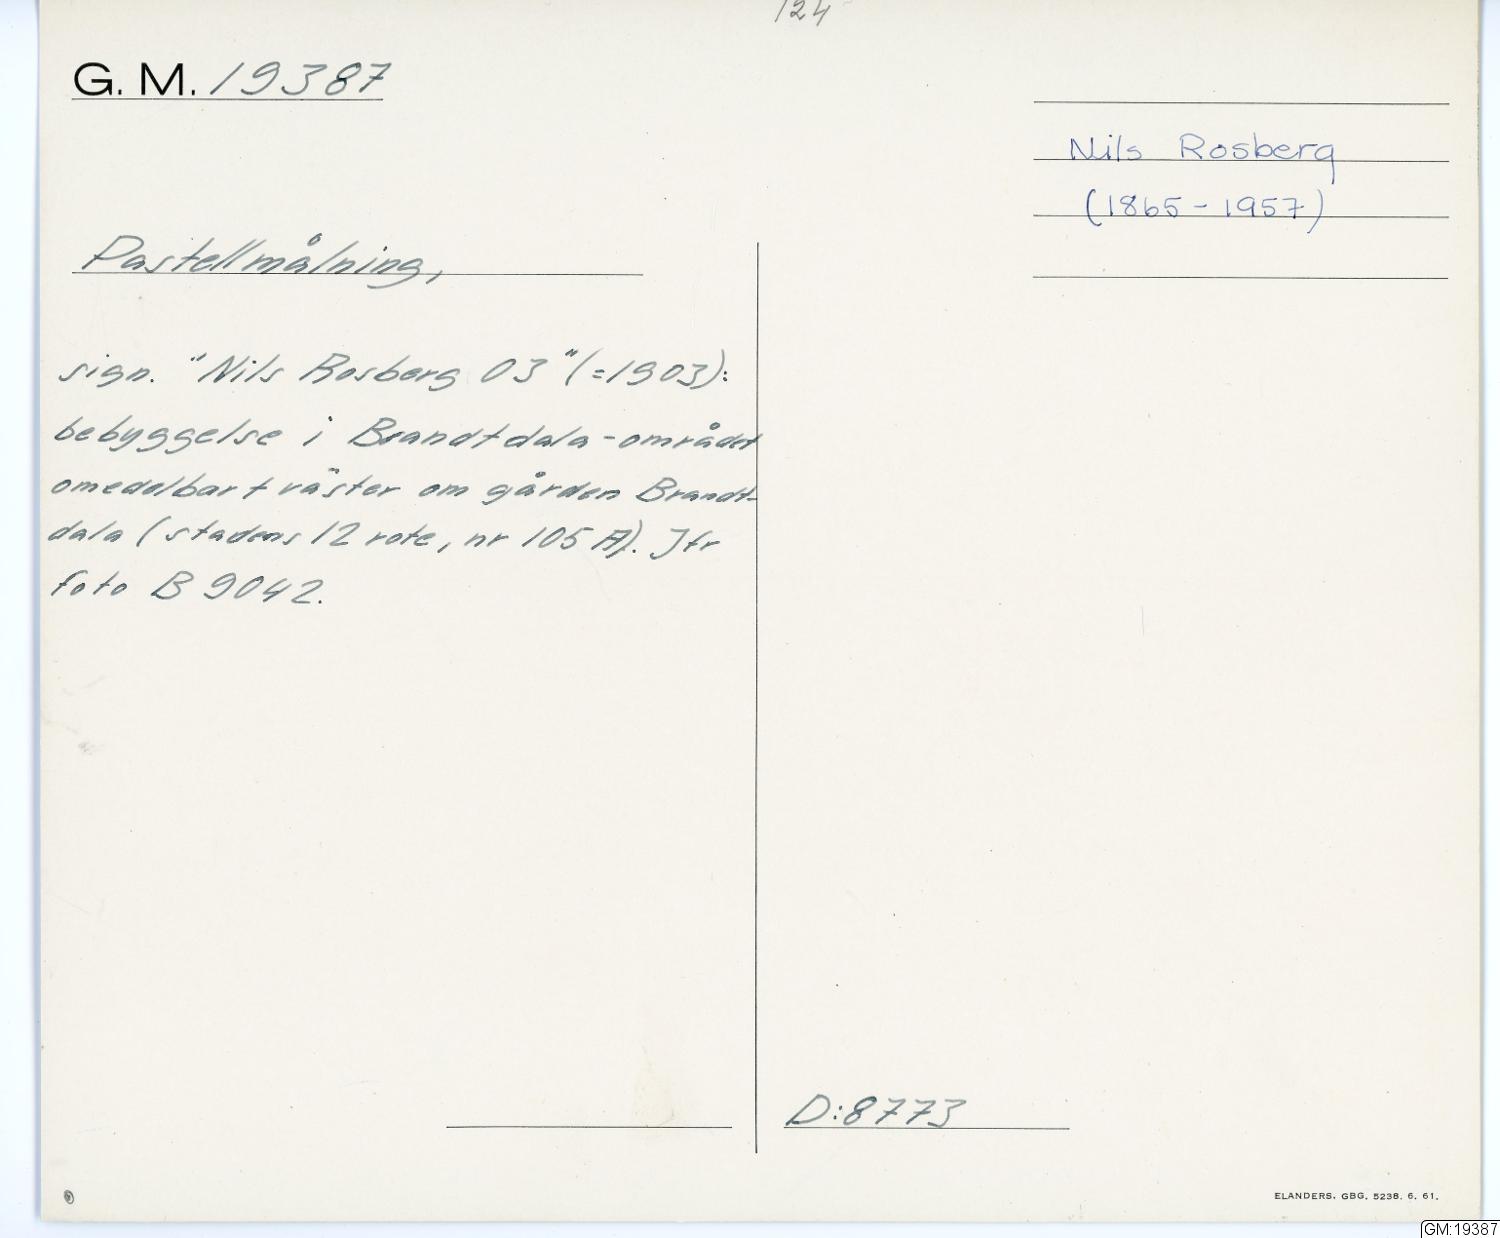 124
G. M. 19387
Nils Rosberg
(1865-1957)
Pastellmålning,
sign. "Nils Rosberg 03" (=1903):
bebyggelse i Brandtdala-området
omedelbart väster om gården Brandt-
dala (stadens 12 rote, nr 105 A). Jfr
foto B 9042.
D:8773
ELANDERS. GBG. 5238. 6. 61.
GM:19387